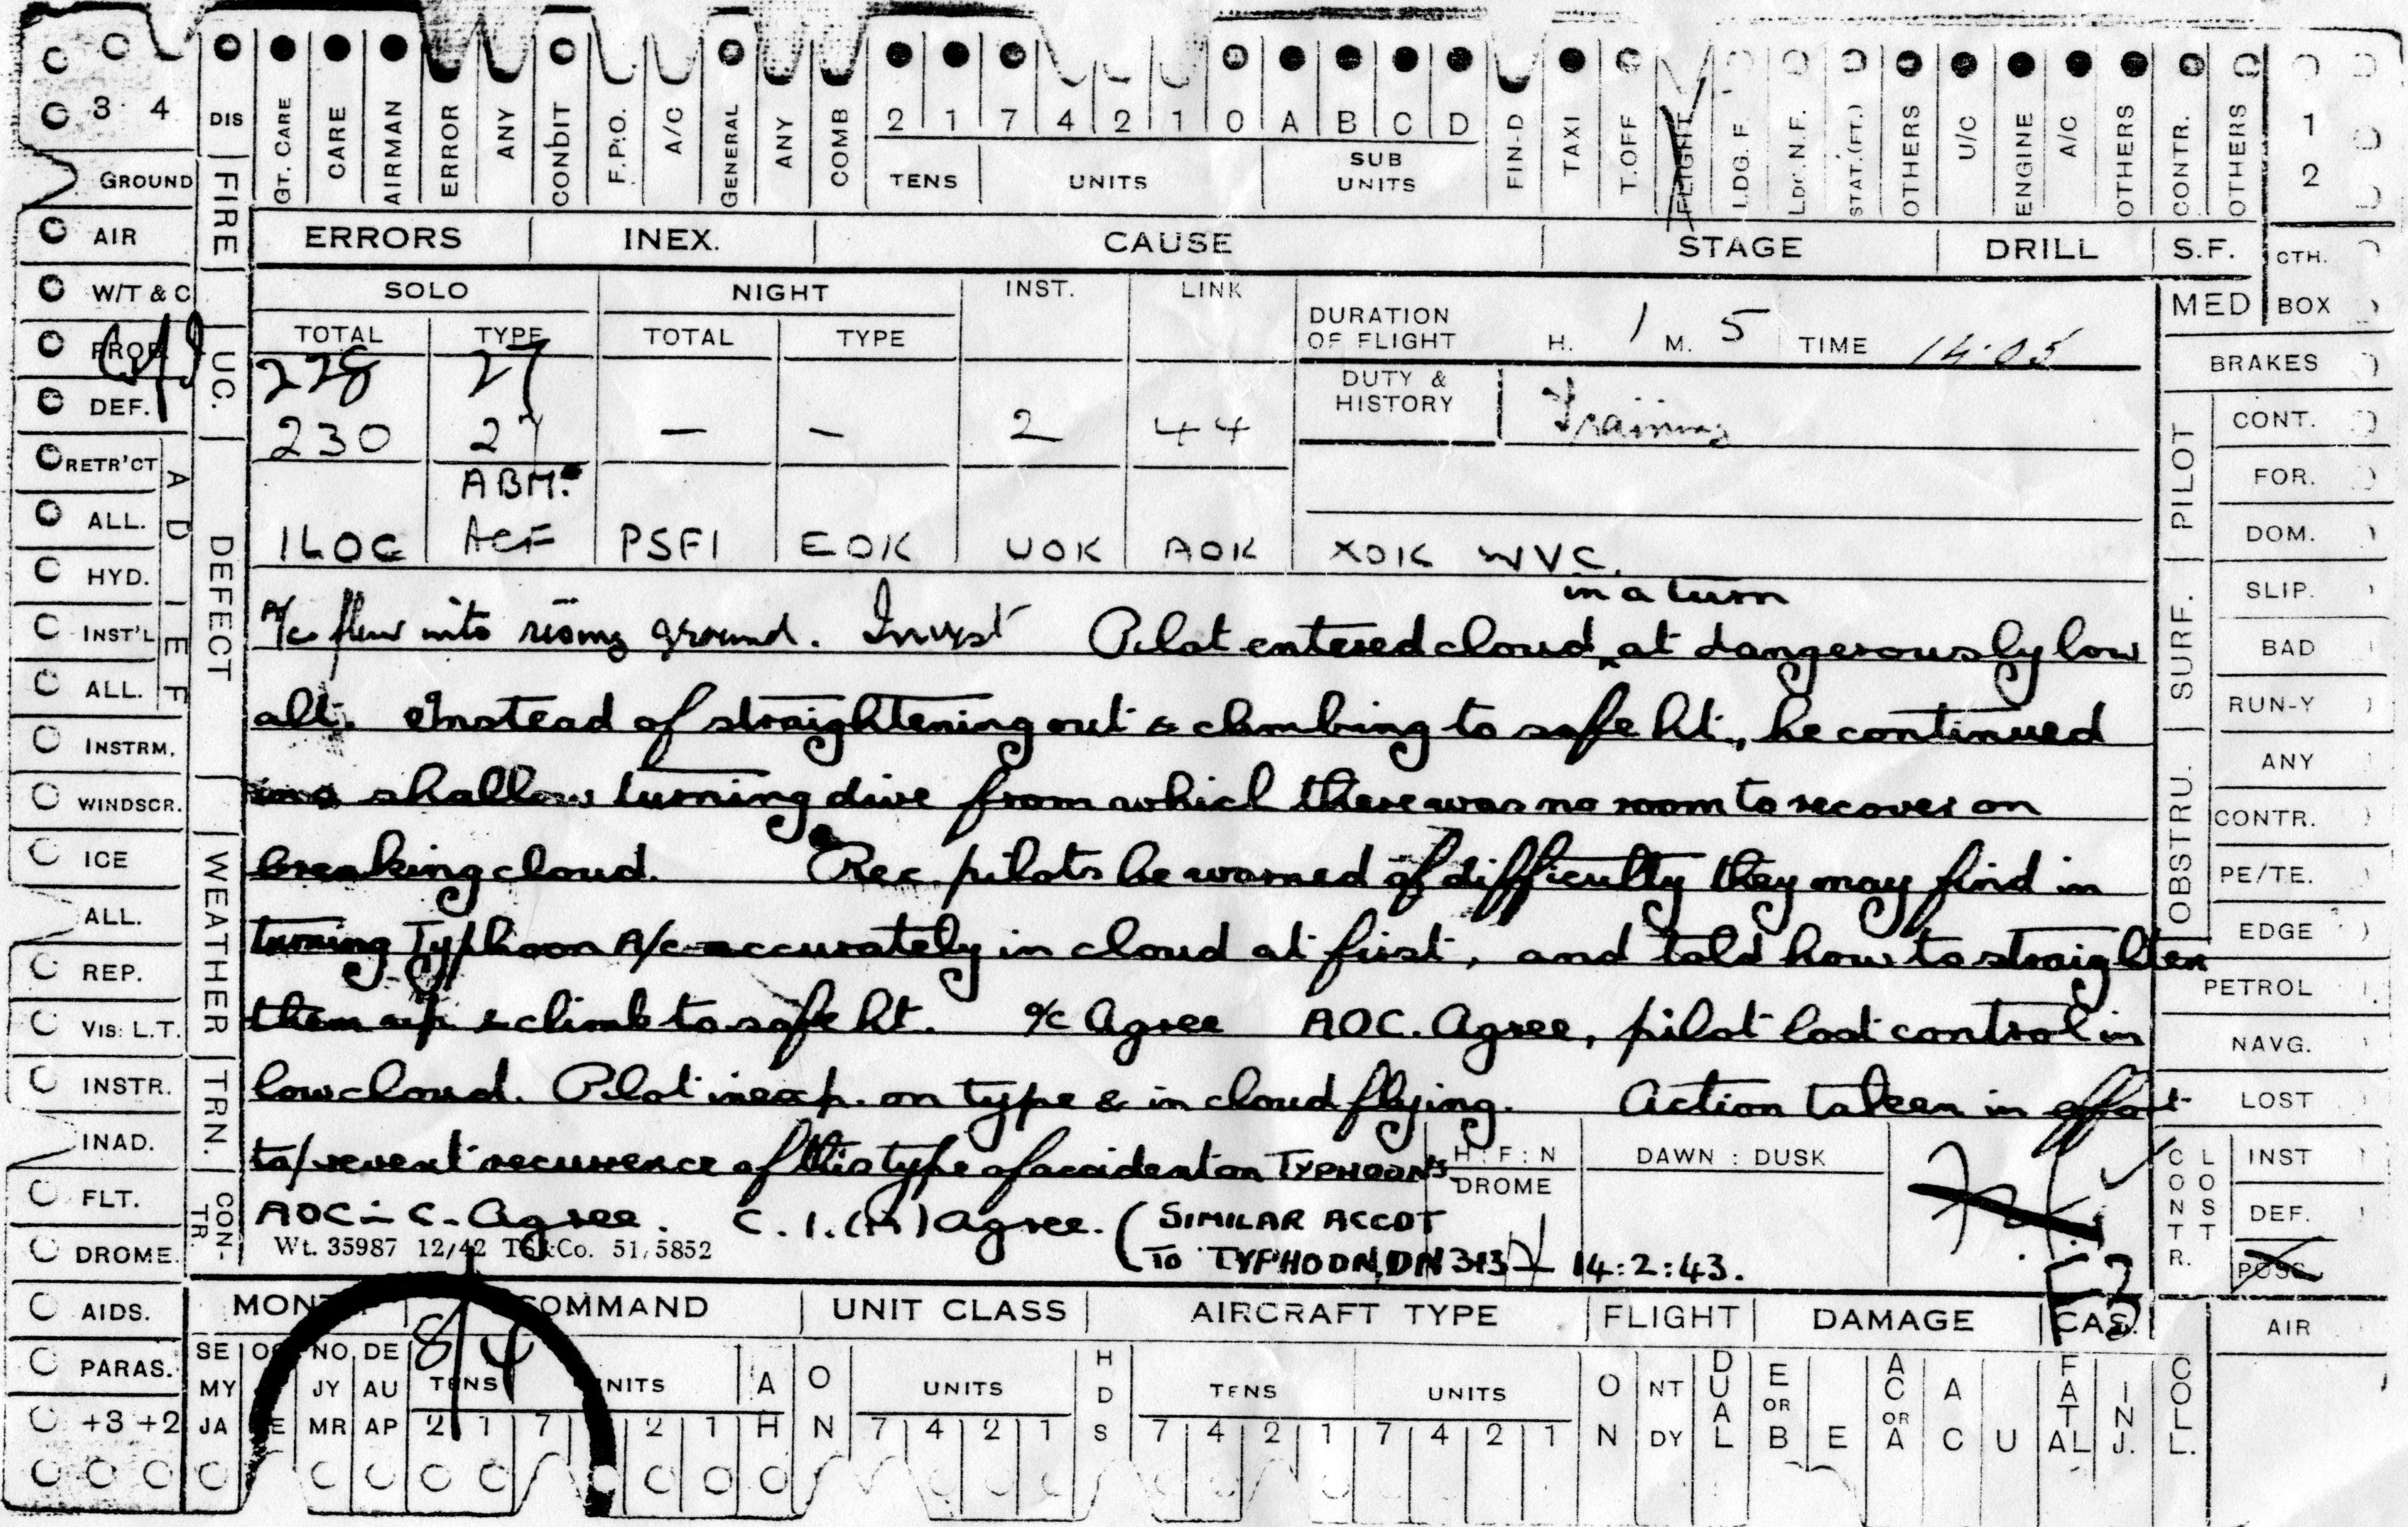 3 4 DIS GT. CARE CARE AIRMAN ERROR ANY CONDIT F.P.O. A/C GENERAL ANY COMB 2 1 7 4 2 1 0 A B C D FIN-D TAXI T.OFF FLIGHT LDG. F. LDG. N.F. STAT.(FT.) OTHERS U/C ENGINE A/C OTHERS CONTR. OTHERS 1 2
TENS UNITS SUB UNITS
GROUND FIRE
AIR ERRORS INEX. CAUSE STAGE DRILL S.F. CTH.
W/T & C SOLO NIGHT INST. LINK MED BOX
PROP. UC. TOTAL TYPE TOTAL TYPE DURATION OF FLIGHT H. 1 M. 5 TIME 14.05 BRAKES
228 27
DEF. DUTY & HISTORY Training PILOT CONT.
230 27 — — 2 44
RETR'CT A D I E F FOR.
ABM.
ALL. DEFECT 1LOC ACF PSF1 EOK UOK AOK XOK WVC. DOM.
HYD. in a turn SURF. SLIP.
INST'L A/c flew into rising ground. Invest Pilot entered cloud, at dangerously low BAD
ALL. alt. Instead of straightening out & climbing to safe ht., he continued RUN-Y
INSTRM. OBSTRU. ANY
WINDSCR. in a shallow turning dive from which there was no room to recover on CONTR.
ICE WEATHER breaking cloud. Rec. pilots be warned of difficulty they may find in PE/TE.
ALL. turning Typhoon A/c accurately in cloud at first, and told how to straighten EDGE
REP. PETROL
VIS: L.T. them up & climb to safe ht. O/c Agree AOC. Agree, pilot lost control in NAVG.
INSTR. TRN. low cloud. Pilot inexp. on type & in cloud flying. Action taken in effort LOST
INAD. to prevent recurrence of this type of accident on TYPHOONS H : F : N DAWN : DUSK CONTR. LOST INST
DROME
FLT. CONTR. AOC-in-C. Agree. C.I.(A) agree. (SIMILAR ACCDT DEF.
DROME. Wt. 35987 12/42 Co. 51/5852 TO TYPHOON, DN 313 14:2:43. POSS.
AIDS. MONTH COMMAND UNIT CLASS AIRCRAFT TYPE FLIGHT DAMAGE CAS. AIR
84
PARAS. SE OC NO DE TENS UNITS A O UNITS HDS TENS UNITS O NT DUAL E OR B E AC OR A A C U FATAL INJ. COLL.
MY JY AU
+3 +2 JA FE MR AP 2 1 7 2 1 H N 7 4 2 1 7 4 2 1 7 4 2 1 N DY